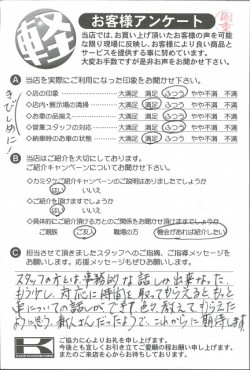 軽
お客様アンケート
当店では、お買い上げ頂いたお客様の声を可能
な限り現場に反映し、お客様により良い商品と
サービスを提供する事に努めております。
大変お手数ですが是非お声をお聞かせ下さい。
きびしめに!
A 当店を実際にご利用になった印象をお聞かせ下さい。
◇店の印象 大満足 満足 ふつう やや不満 不満
◇店内・展示場の清掃 大満足 満足 ふつう やや不満 不満
◇お車の品揃え 大満足 満足 ふつう やや不満 不満
◇営業スタッフの対応 大満足 満足 ふつう やや不満 不満
◇納車時のお車の状態 大満足 満足 ふつう やや不満 不満
B 当店はご紹介を大切にしております。
ご紹介キャンペーンについてお聞かせ下さい。
◇カミタケご紹介キャンペーンのご説明はありましたでしょうか
はい いいえ
◇ご紹介を頂けますでしょうか
はい いいえ
◇具体的にご紹介頂ける方とのご関係をお聞かせ頂けますでしょうか
ご親戚 ご友人 職場の方 機会があれば紹介したい
C 担当させて頂きましたスタッフへのご指摘、ご指導メッセージを
お願いします。応援メッセージもぜひお願いします。
スタッフの方とは、事務的な話しか出来なった。
もう少し、対応に時間を取ってもらえるともっと
車についての話しができ、色々教えてもらえた
ように思う。新人さんだったようで、これからに期待します。
K
ご協力に心よりお礼を申し上げます。
今後とも宜しくお引き立てご愛顧の程お願い申し上げます。
またのご来店を心からお待ちしております。